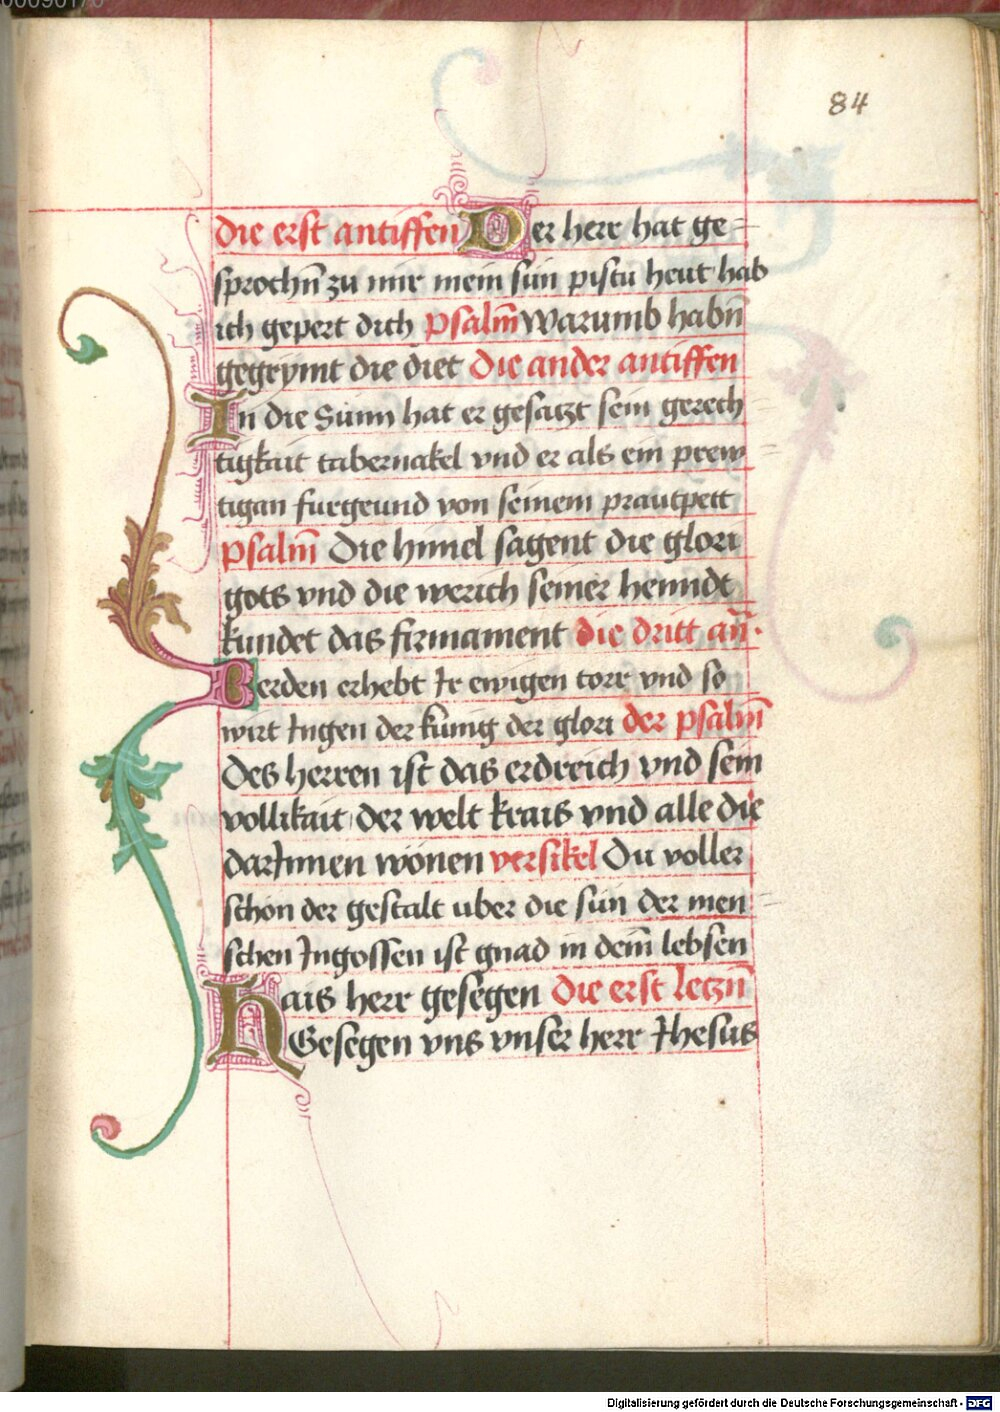 84
die erst antiffen Der herr hat ge-
sprochn̄ zu mir mein sun pistu heut hab
ich gepert dich psalm̄ Warumb habn̄
gegrymt die diet die ander antiffen
In die Sunn hat er gesatzt sein gerech
tigkait tabernakel vnd er als ein prew
tigan furgeund von seinem prautpett
psalm̄ Die himel sagent die glori
gots vnd die werich seiner henndt
kundet das firmament die dritt an̄.
Werden erhebt Ir ewigen torr vnd so
wirt Ingen der kunig der glori der psalm̄
Des herren ist das erdreich vnd sein
vollikait der welt krais vnd alle die
darInnen wonen versikel Du voller
schon der gestalt uber die sun der men
schen Ingossen ist gnad in dein̄ lebsen
Hais herr gesegen die erst letzn̄
Gesegen vns vnser herr Ihesus
Digitalisierung gefördert durch die Deutsche Forschungsgemeinschaft - DFG